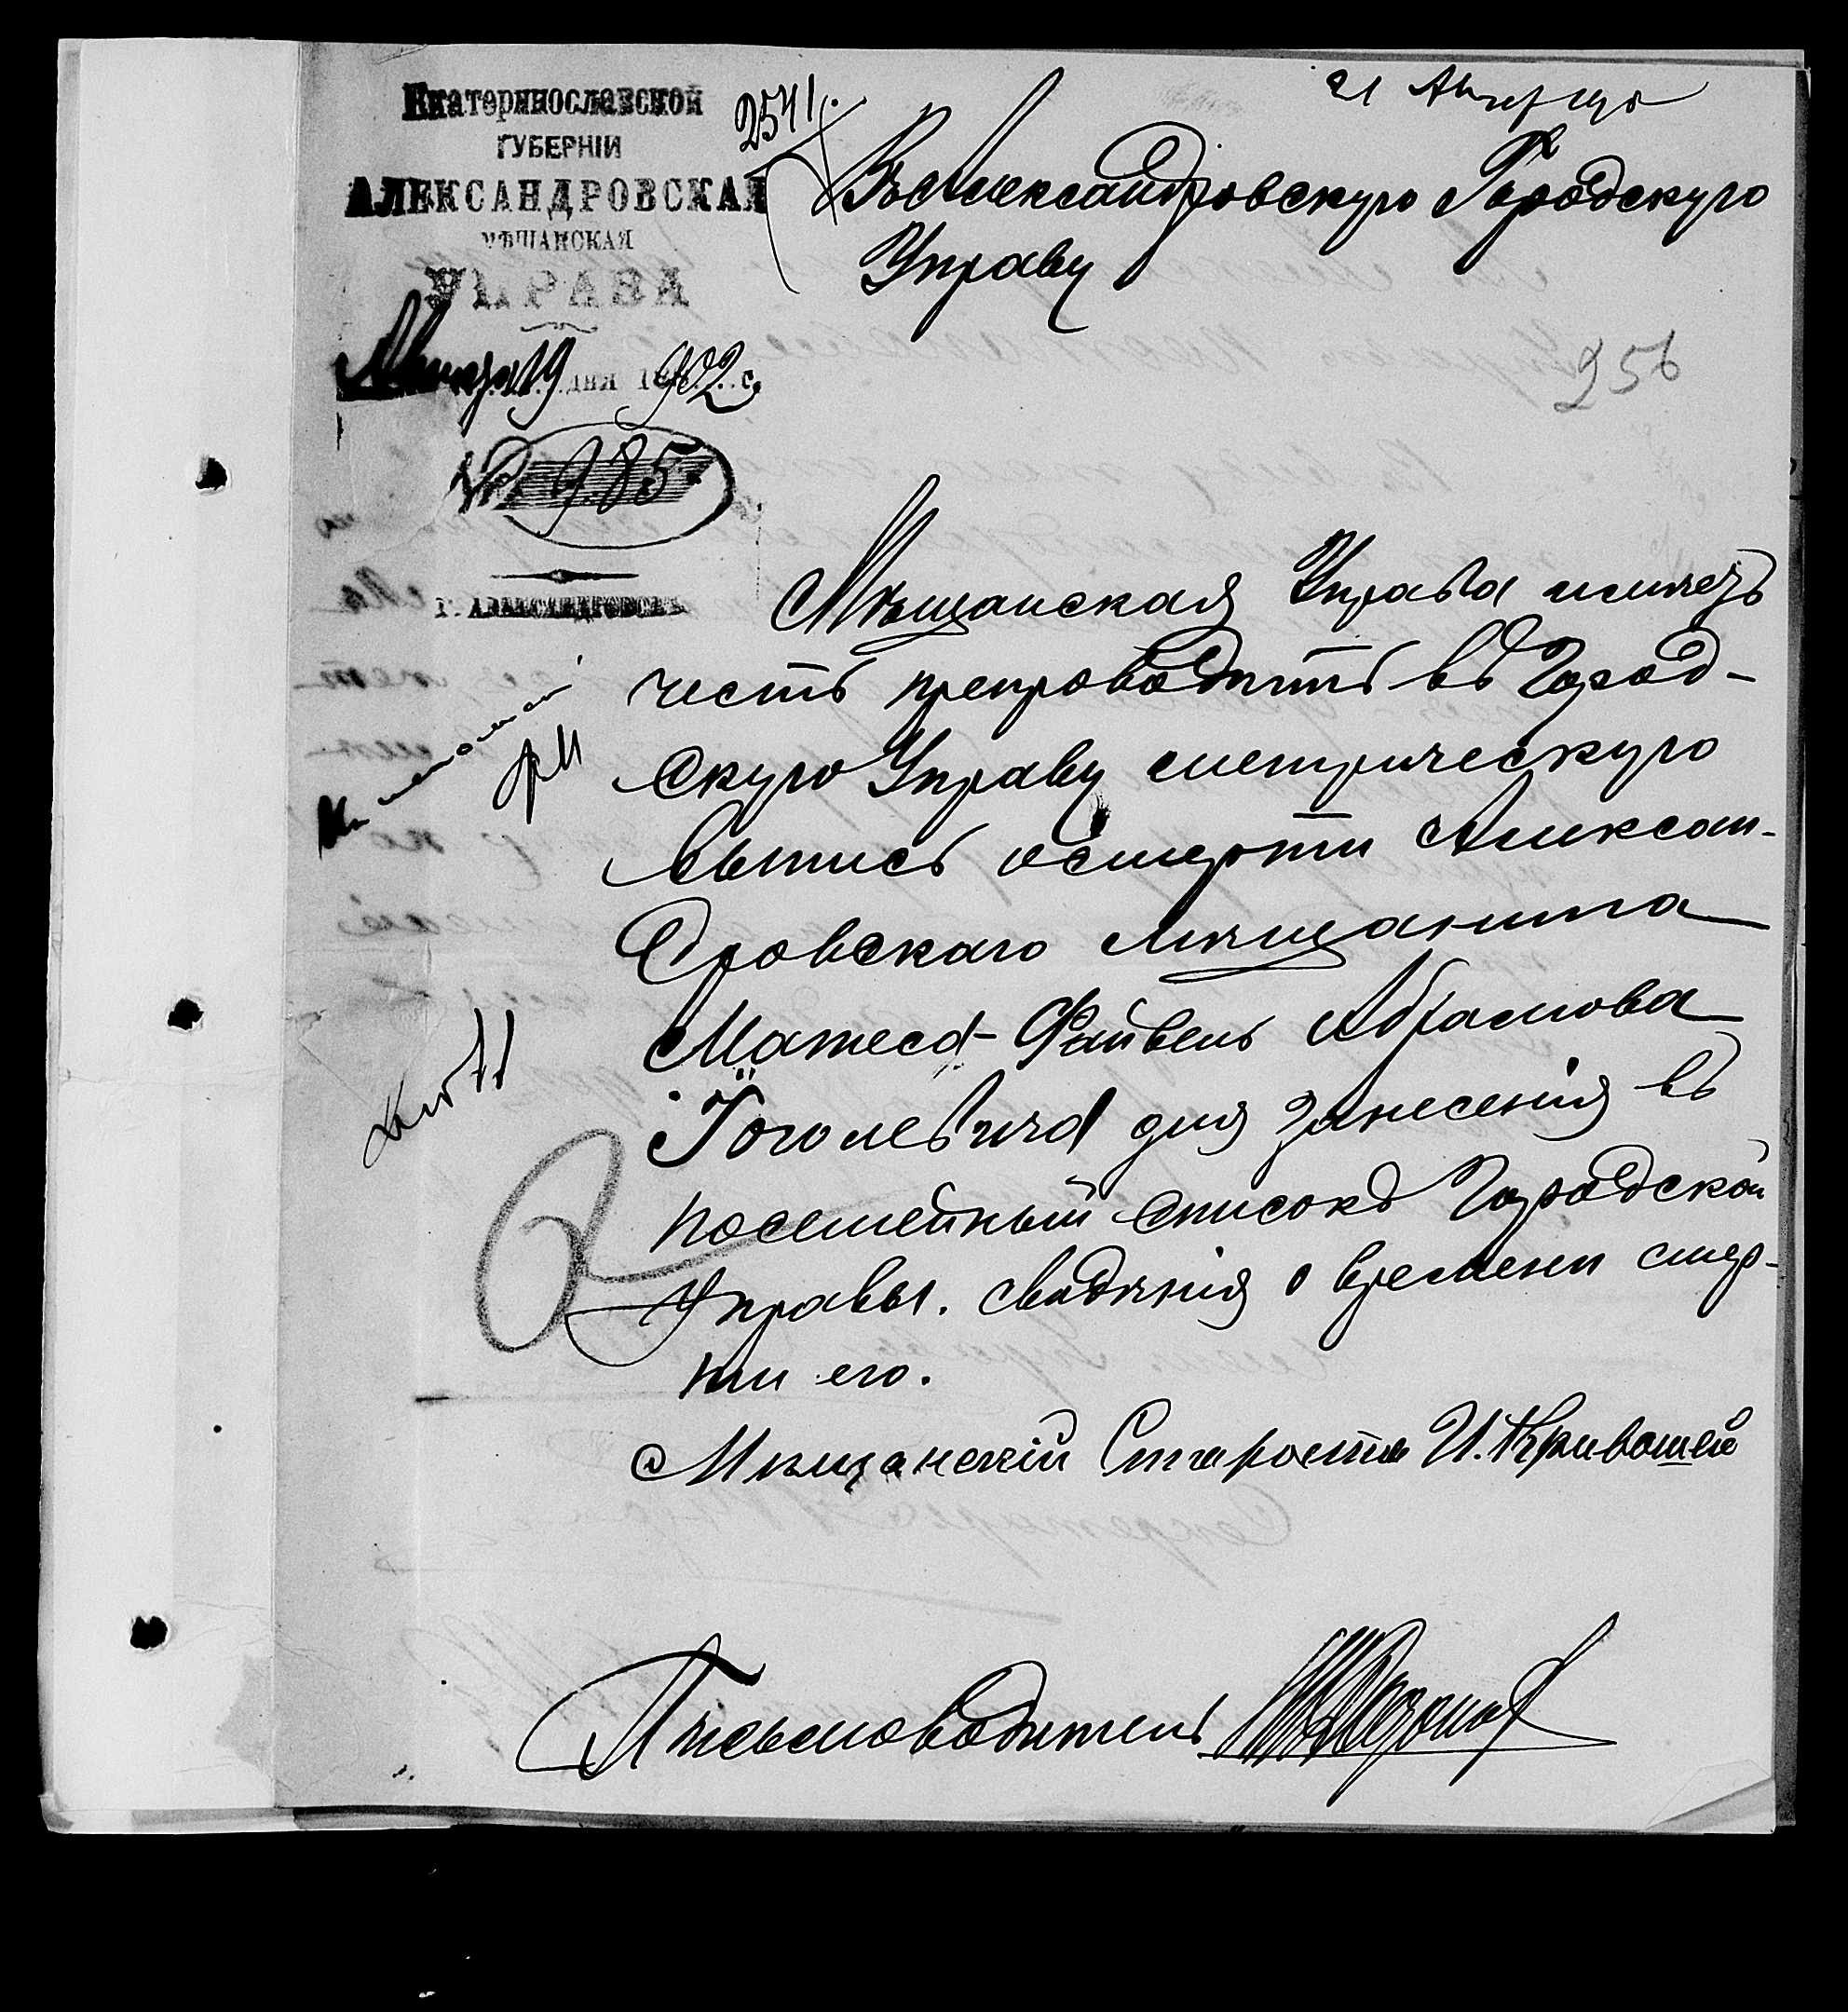 Екатеринославской
ГУБЕРНІИ
АЛЕКСАНДРОВСКАЯ
МѢЩАНСКАЯ
УПРАВА
Августа 19 дня 1902 г.
№ 985
Г. АЛЕКСАНДРОВСКЪ
2541.
21 Августа
Въ Александровскую Городскую
Управу
256
Мѣщанская Управа имѣетъ
честь препроводить въ Город-
скую Управу метрическую
выпись о смерти Алексан-
дровскаго мѣщанина
Матеса-Файвель Абрамова
Гоголевича для занесенія въ
посемейный списокъ Городской
Управы. свѣдѣнія о времени смер-
ти его.
Мѣщанскій Староста И. Кривошей
Письмоводитель